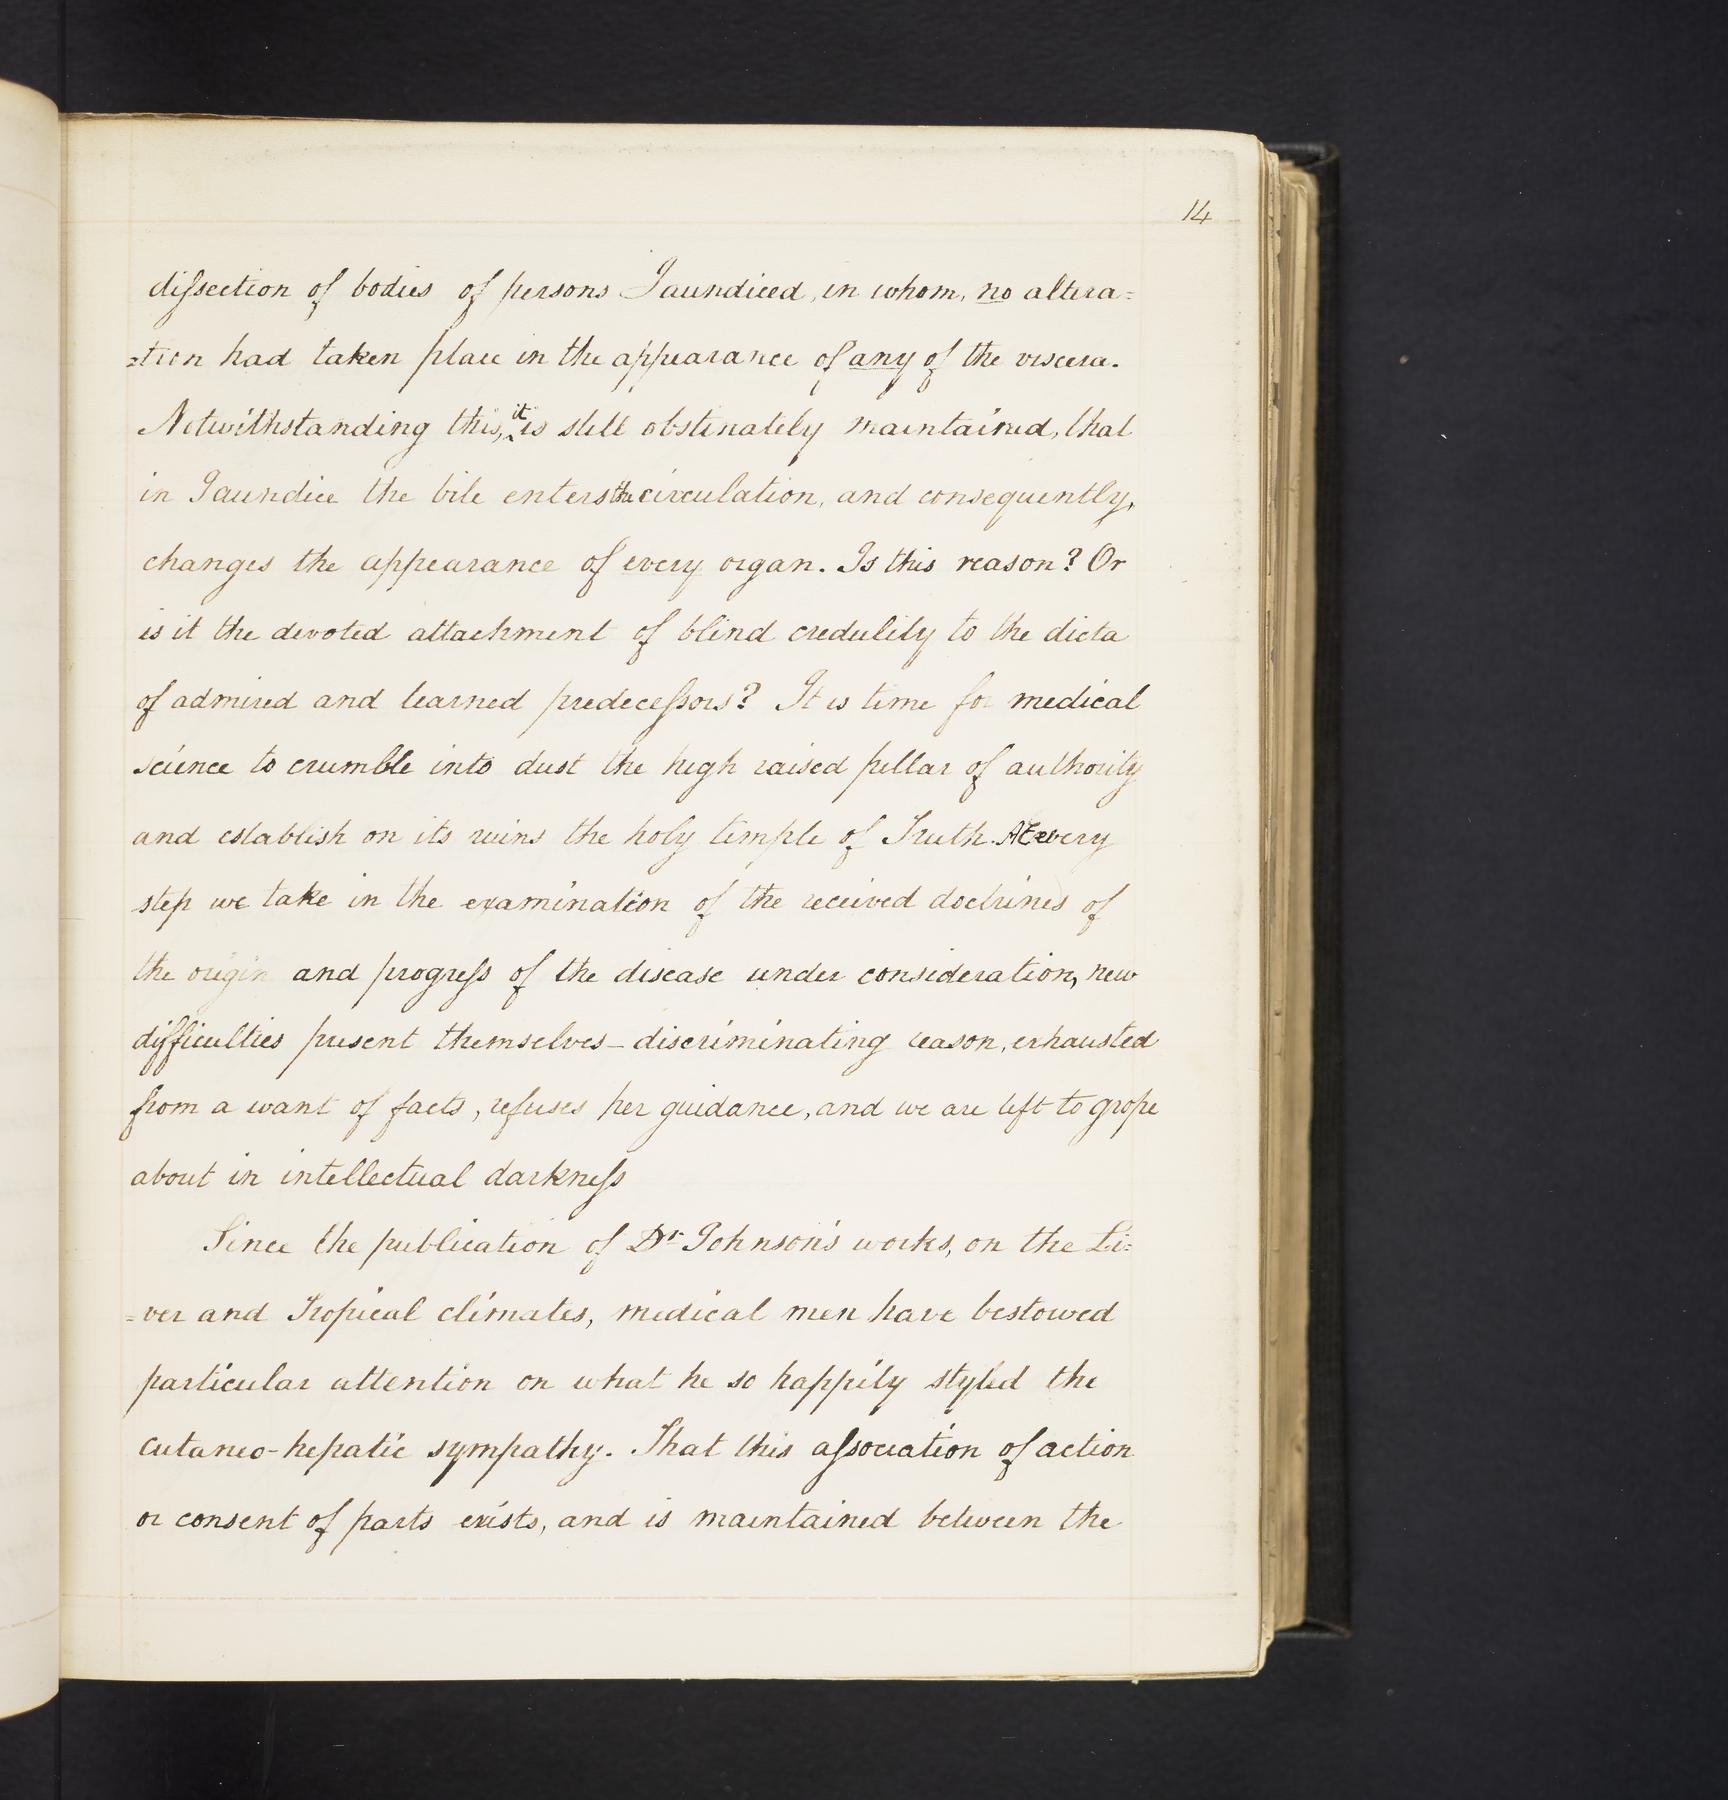 14
dissection of bodies of persons Jaundiced, in whom, no altera=
=tion had taken place in the appearance of any of the viscera.
Notwithstanding this, it is still obstinately maintained, that
in Jaundice the bile enters the circulation, and consequently,
changes the appearance of every organ. Is this reason? Or
is it the devoted attachment of blind credulity to the dicta
of admired and learned predecessors? It is time for medical
science to crumble into dust the high raised pillar of authority
and establish on its ruins the holy temple of Truth. At every
step we take in the examination of the received doctrines of
the origin and progress of the disease under consideration, new
difficulties present themselves - discriminating reason, exhausted
from a want of facts, refuses her guidance, and we are left to grope
about in intellectual darkness
Since the publication of Dr Johnson's works, on the Li=
=ver and Tropical climates, medical men have bestowed
particular attention on what he so happily styled the
cutaneo-hepatic sympathy. That this association of action
or consent of parts exists, and is maintained between the